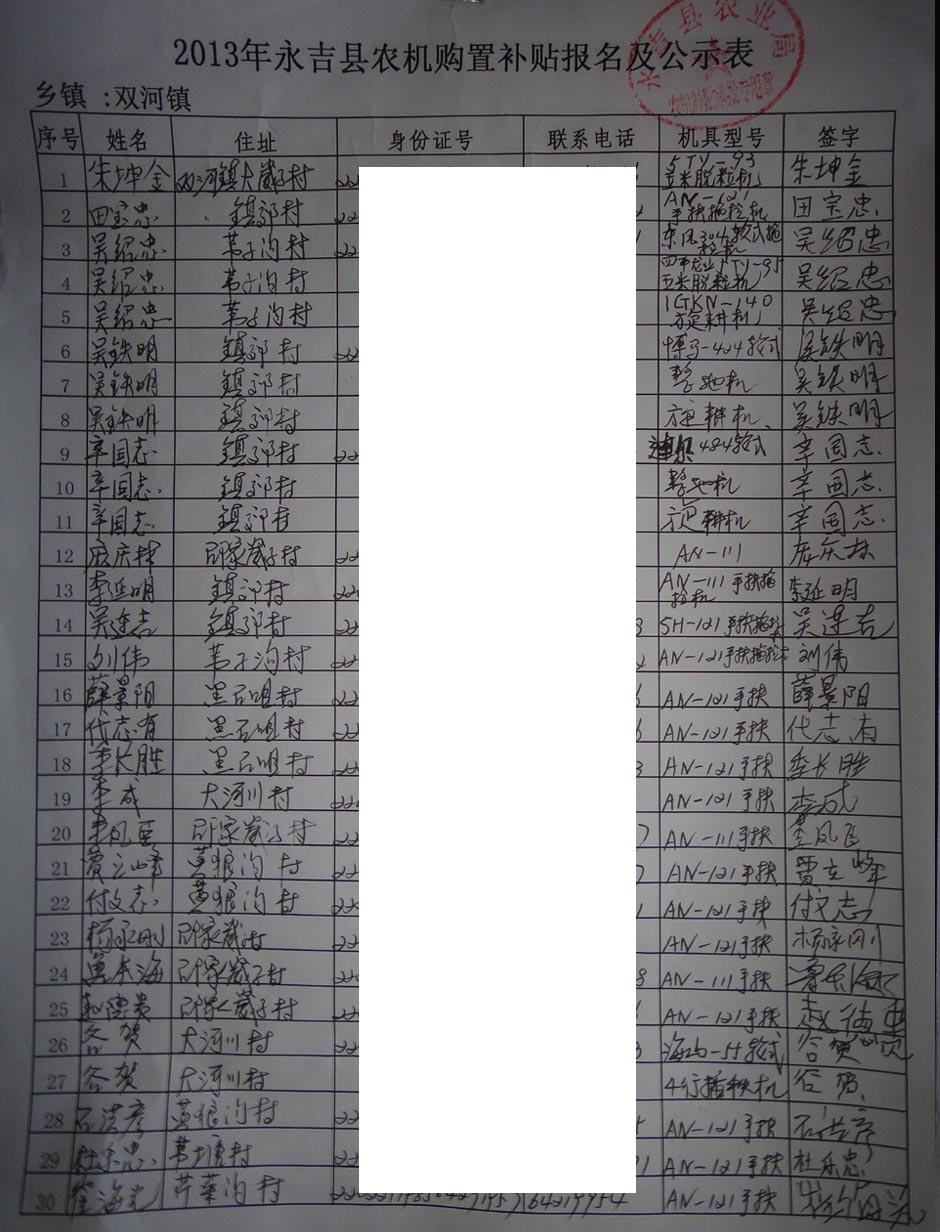 永吉县农业局
2013年永吉县农机购置补贴报名及公示表
乡镇 :双河镇
序号 姓名 住址 身份证号 联系电话 机具型号 签字
1 朱坤金 双河镇大崴子村 22 5TY-93 玉米脱粒机 朱坤金
2 田宝忠 镇郊村 22 AN-121 手扶拖拉机 田宝忠
3 吴绍忠 苇子沟村 22 东风304轮式拖拉机 吴绍忠
4 吴绍忠 苇子沟村 5TY-95 玉米脱粒机 吴绍忠
5 吴绍忠 苇子沟村 1GKN-140 旋耕机 吴绍忠
6 吴铁明 镇郊村 22 博马-424轮式 吴铁明
7 吴铁明 镇郊村 整地机 吴铁明
8 吴铁明 镇郊村 旋耕机 吴铁明
9 辛国志 镇郊村 22 484轮式 辛国志
10 辛国志 镇郊村 整地机 辛国志
11 辛国志 镇郊村 旋耕机 辛国志
12 邱家崴子村 22 AN-111
13 李延明 镇郊村 22 AN-111手扶拖拉机 李延明
14 吴连吉 镇郊村 22 3 SH-121手扶拖拉 吴连吉
15 刘伟 苇子沟村 22 2 AN-121手扶拖拉 刘伟
16 薛景阳 黑石咀村 22 AN-121手扶 薛景阳
17 代志有 黑石咀村 22 AN-121手扶 代志有
18 李长胜 黑石咀村 22 3 AN-121手扶 李长胜
19 李成 大河川村 22 AN-121手扶 李成
20 邱家崴子村 22 7 AN-111手扶
21 立峰 黄狼沟村 22 7 AN-121手扶 立峰
22 付文志 黄狼沟村 22 1 AN-121手扶 付文志
23 杨家刚 邱家崴子村 22 AN-121手扶 杨家刚
24 邱家崴子村 22 8 AN-111手扶
25 赵德贵 邱家崴子村 22 AN-121手扶 赵德贵
26 谷贺 大河川村 22 3 海山-55轮式 谷贺
27 谷贺 大河川村 4行插秧机 谷贺
28 石洪彦 黄狼沟村 22 AN-121手扶 石洪彦
29 杜乐忠 村 22 1 AN-121手扶 杜乐忠
30 沟村 AN-121手扶